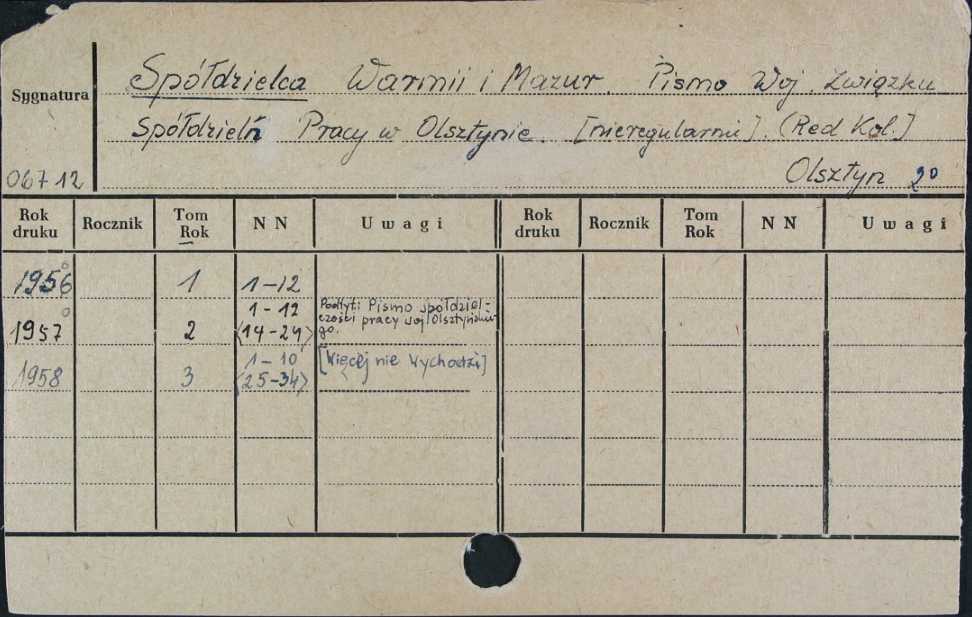 Spółdzielca Warmii i Mazur. Pismo Woj. Związku
Sygnatura
Spółdzielń Pracy w Olsztynie. [nieregularnie]. (Red Kol.]
06712 Olsztyn 2º
Rok druku Rocznik Tom Rok N N Uwagi Rok druku Rocznik Tom Rok N N Uwagi
1956º 1 1-12
1957º 2 1-12 (14-24) Podtyt: Pismo spółdziel-
czości pracy woj Olsztyńskie
go.
1958 3 1-10 (25-34) [Więcej nie wychodzi]